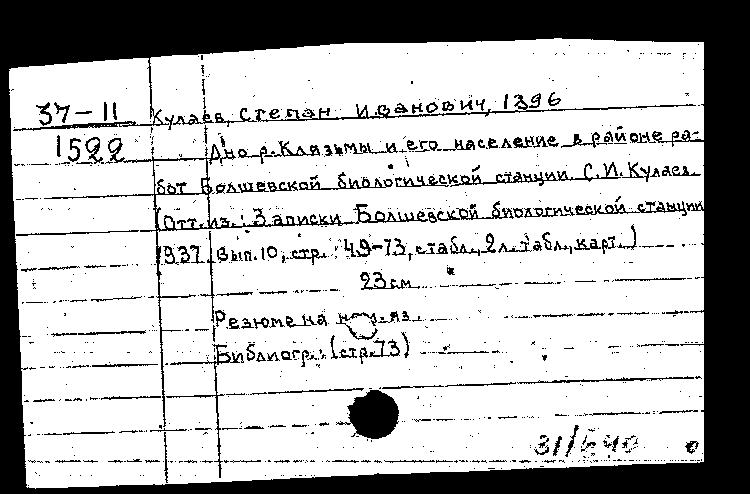 37-11 Кулаев, Степан Иванович, 1396
1522 Дно р. Клязьмы и его население в районе ра-
бот Болшевской биологической станции. С.И. Кулаев.
(Отт. из.: Записки Болшевской биологической станции
1937 Вып. 10, стр. 49-73, с табл., 2 л. табл., карт.)
23 см
Резюме на нем. яз.
Библиогр.: (стр. 73)